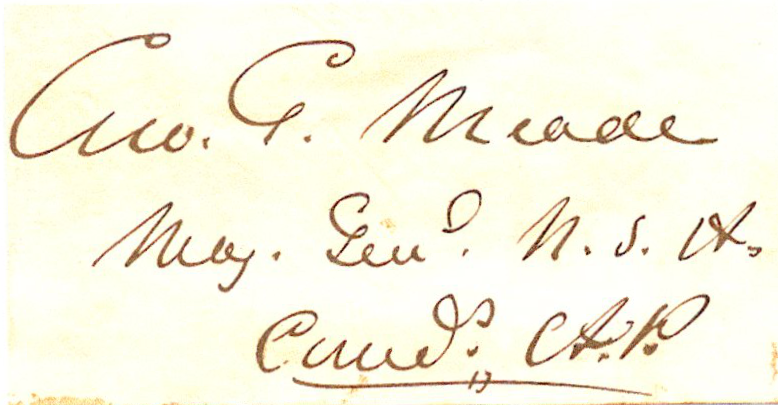 Geo. G. Meade
Maj. Genl. U. S. A.
Comdg. A. P.